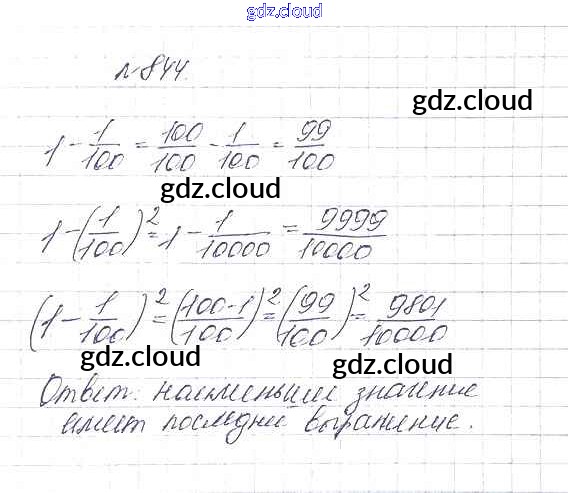 gdz.cloud
№844.
gdz.cloud
1 - 1/100 = 100/100 - 1/100 = 99/100
gdz.cloud
1 - (1/100)² = 1 - 1/10000 = 9999/10000
(1 - 1/100)² = (100-1/100)² = (99/100)² = 9801/10000
gdz.cloud gdz.cloud
Ответ: наименьшее значение
имеет последнее выражение.